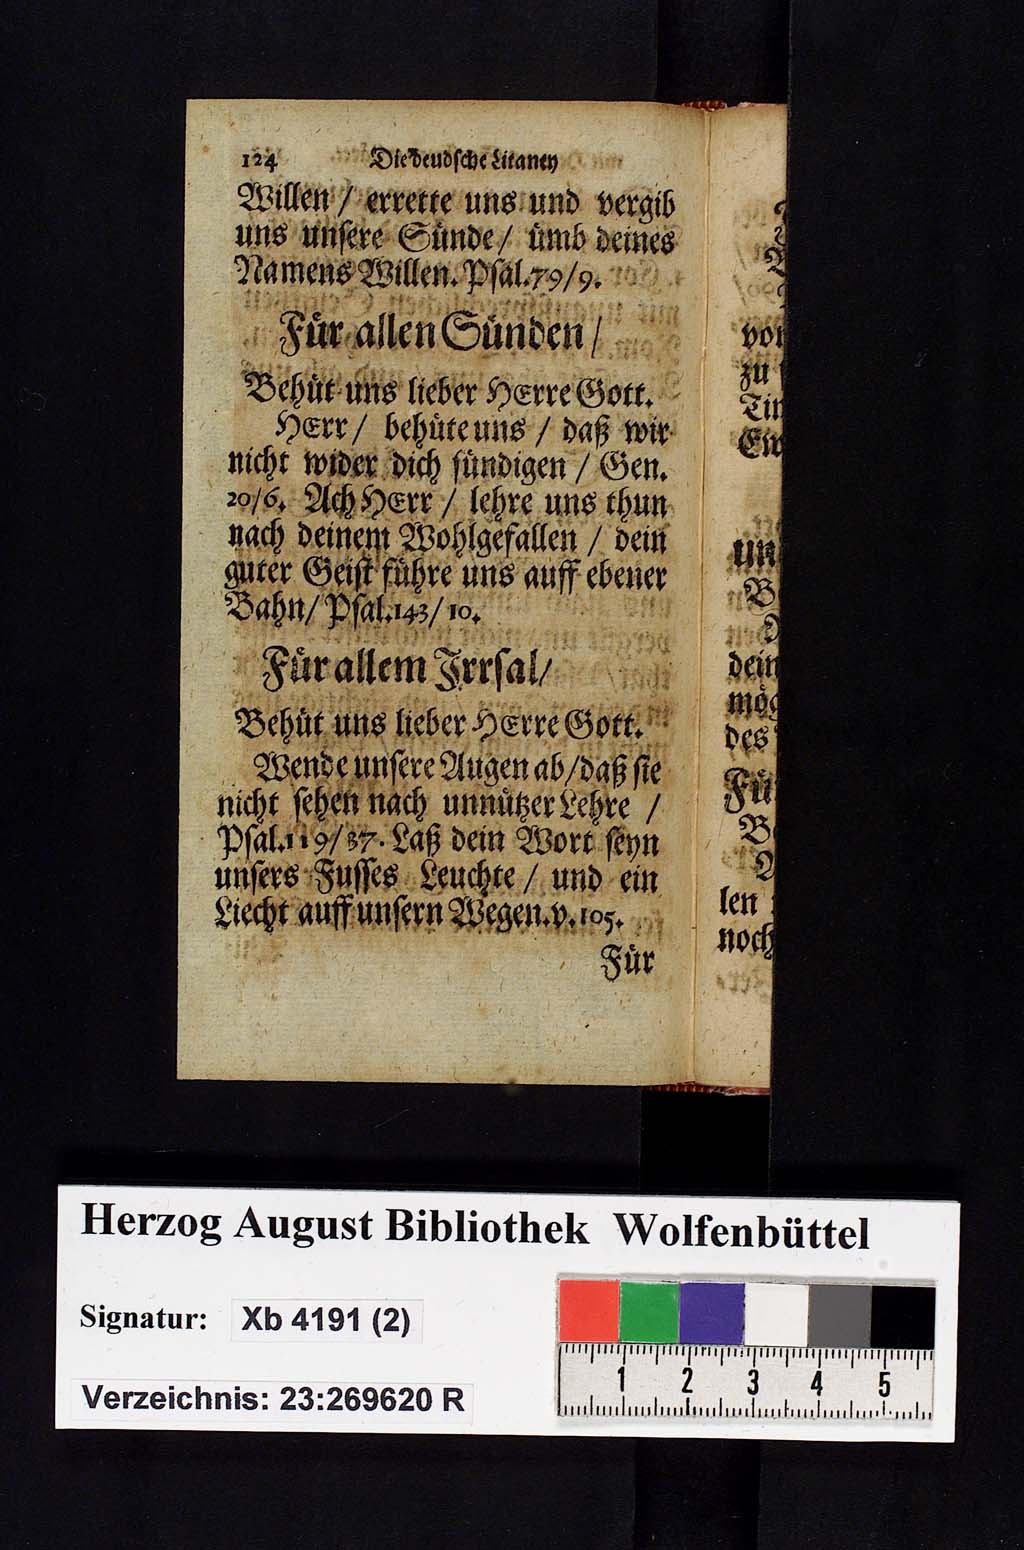 124 Die deudsche Litaney
Willen / errette uns und vergib
uns unsere Sünde / ümb deines
Namens Willen. Psal. 79/9.
Für allen Sünden /
Behüt uns lieber HErre Gott.
HErr / behüte uns / daß wir
nicht wider dich sündigen / Gen.
20/6. Ach HErr / lehre uns thun
nach deinem Wohlgefallen / dein
guter Geist führe uns auff ebener
Bahn / Psal. 143/10.
Für allem Irrsal /
Behüt uns lieber HErre Gott.
Wende unsere Augen ab / daß sie
nicht sehen nach unnützer Lehre /
Psal. 119/37. Laß dein Wort seyn
unsers Fusses Leuchte / und ein
Liecht auff unsern Wegen. v. 105.
Für
zu
dein
des
len
noch
Herzog August Bibliothek Wolfenbüttel
Signatur: Xb 4191 (2)
Verzeichnis: 23:269620 R
1 2 3 4 5